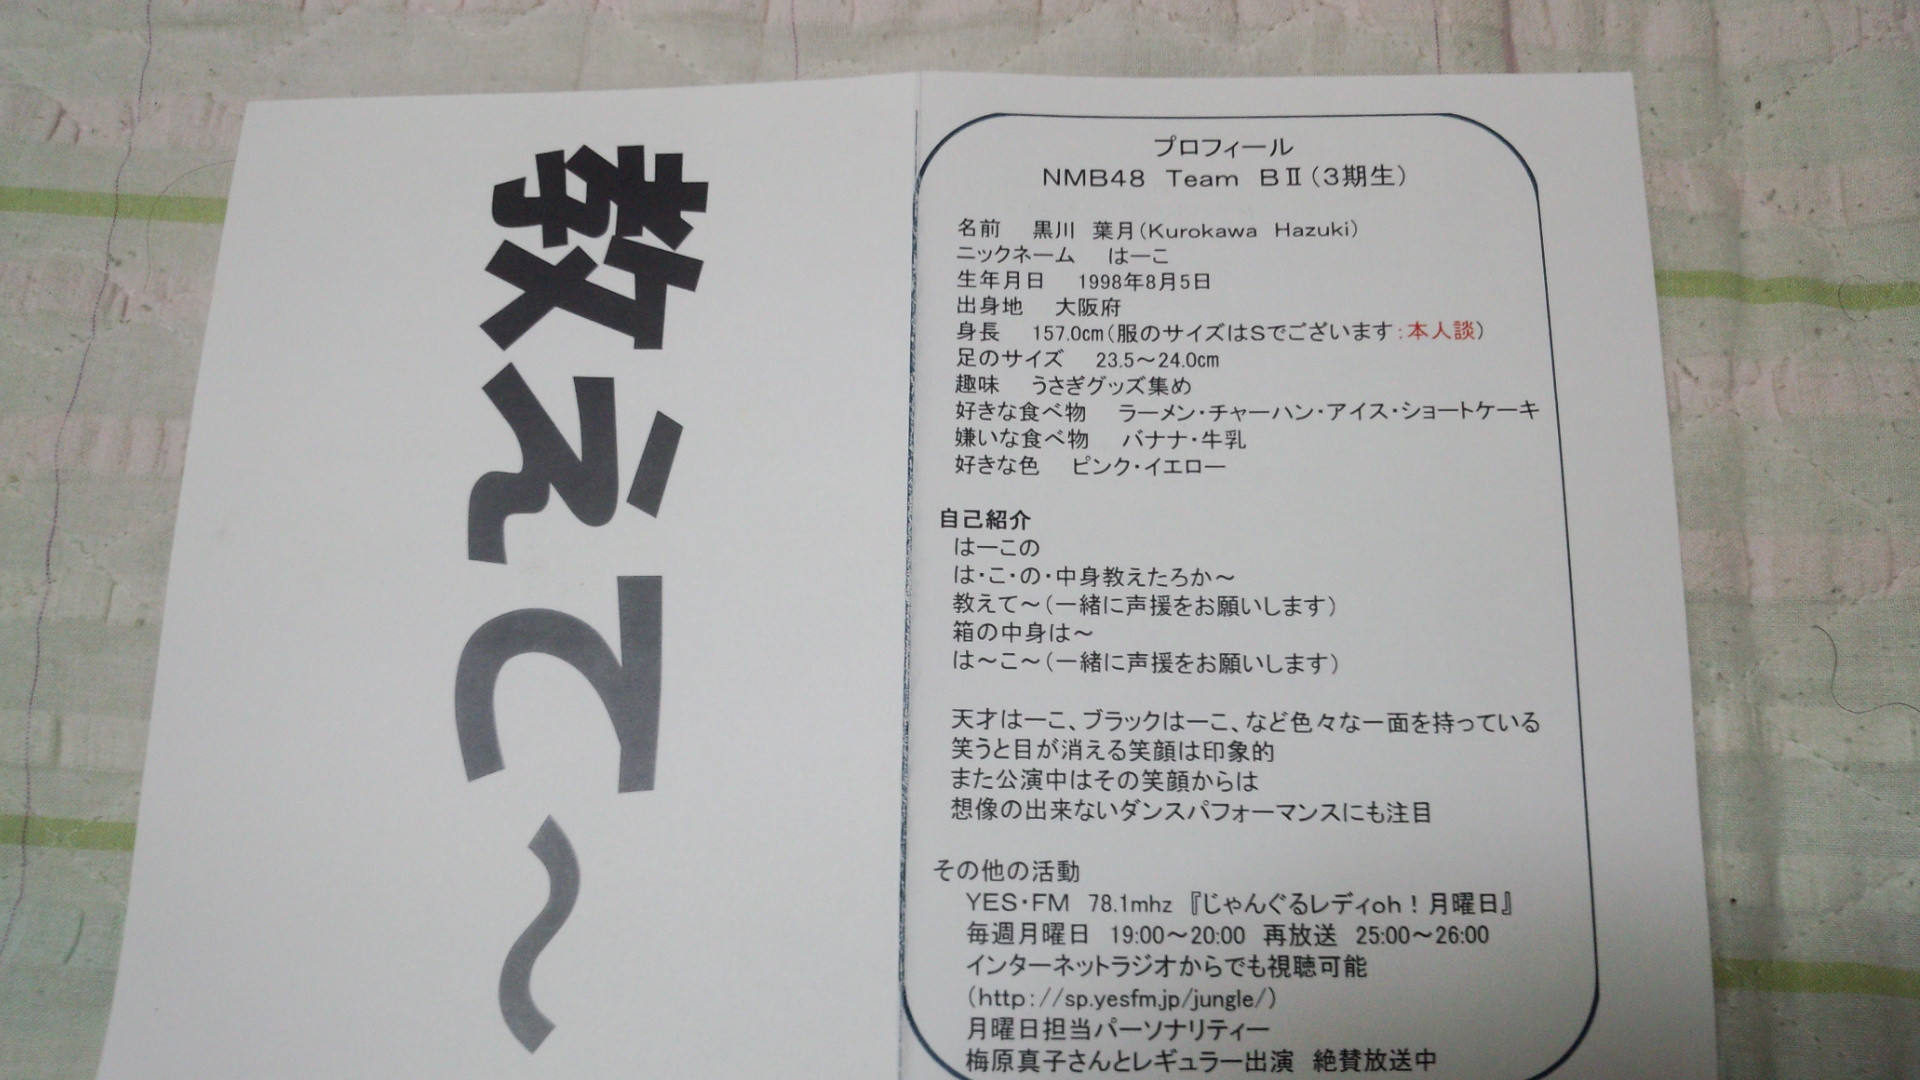 教えて～
プロフィール
NMB48　Team　BⅡ（３期生）
名前　黒川　葉月（Kurokawa　Hazuki）
ニックネーム　はーこ
生年月日　1998年8月5日
出身地　大阪府
身長　157.0cm（服のサイズはSでございます：本人談）
足のサイズ　23.5～24.0cm
趣味　うさぎグッズ集め
好きな食べ物　ラーメン・チャーハン・アイス・ショートケーキ
嫌いな食べ物　バナナ・牛乳
好きな色　ピンク・イエロー
自己紹介
はーこの
は・こ・の・中身教えたろか～
教えて～（一緒に声援をお願いします）
箱の中身は～
は～こ～（一緒に声援をお願いします）
天才はーこ、ブラックはーこ、など色々な一面を持っている
笑うと目が消える笑顔は印象的
また公演中はその笑顔からは
想像の出来ないダンスパフォーマンスにも注目
その他の活動
YES・FM　78.1mhz　『じゃんぐるレディoh！月曜日』
毎週月曜日　19:00～20:00　再放送　25:00～26:00
インターネットラジオからでも視聴可能
（http：//sp.yesfm.jp/jungle/）
月曜日担当パーソナリティー
梅原真子さんとレギュラー出演　絶賛放送中